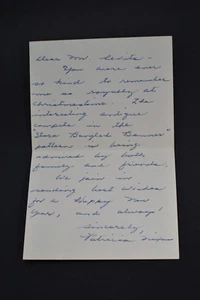 Dear Mr. 
You were ever
so kind to remember
me so royally at
Christmastime. The
interesting antique
coverlet in the
"Star Spangled Banner"
pattern is being
admired by both
family and friends.
We join in
sending best wishes
for a Happy New
Year, and always!
Sincerely,
Patricia Nixon